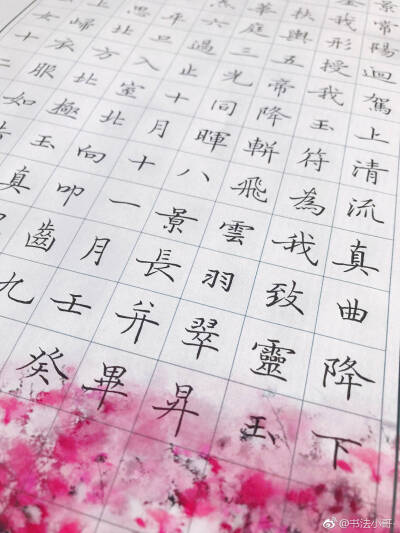 景常陽迴駕上清流真曲降下
全我形授我玉符為我致靈玉
扶輿五帝降軿飛雲羽翠昇
華庭三光同暉八景長并畢
六過止十月十一月壬癸
平旦入室北向叩齒九
思北方北極玉真
歸衣服如
女十
@书法小哥